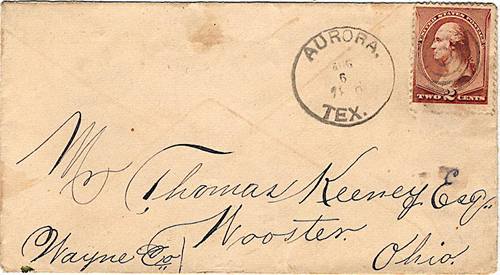 UNITED STATES POSTAGE
TWO 2 CENTS
AURORA,
AUG
6
TEX.
Mr Thomas Keeney Esq.
Wooster.
Wayne Co Ohio.